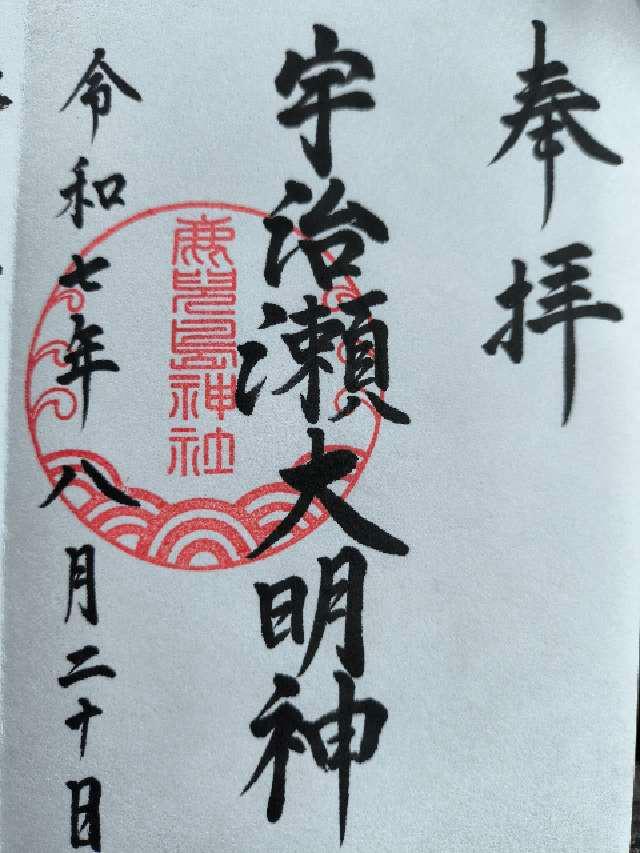 奉拝
宇治瀬大明神
鹿児島神社
令和七年八月二十日